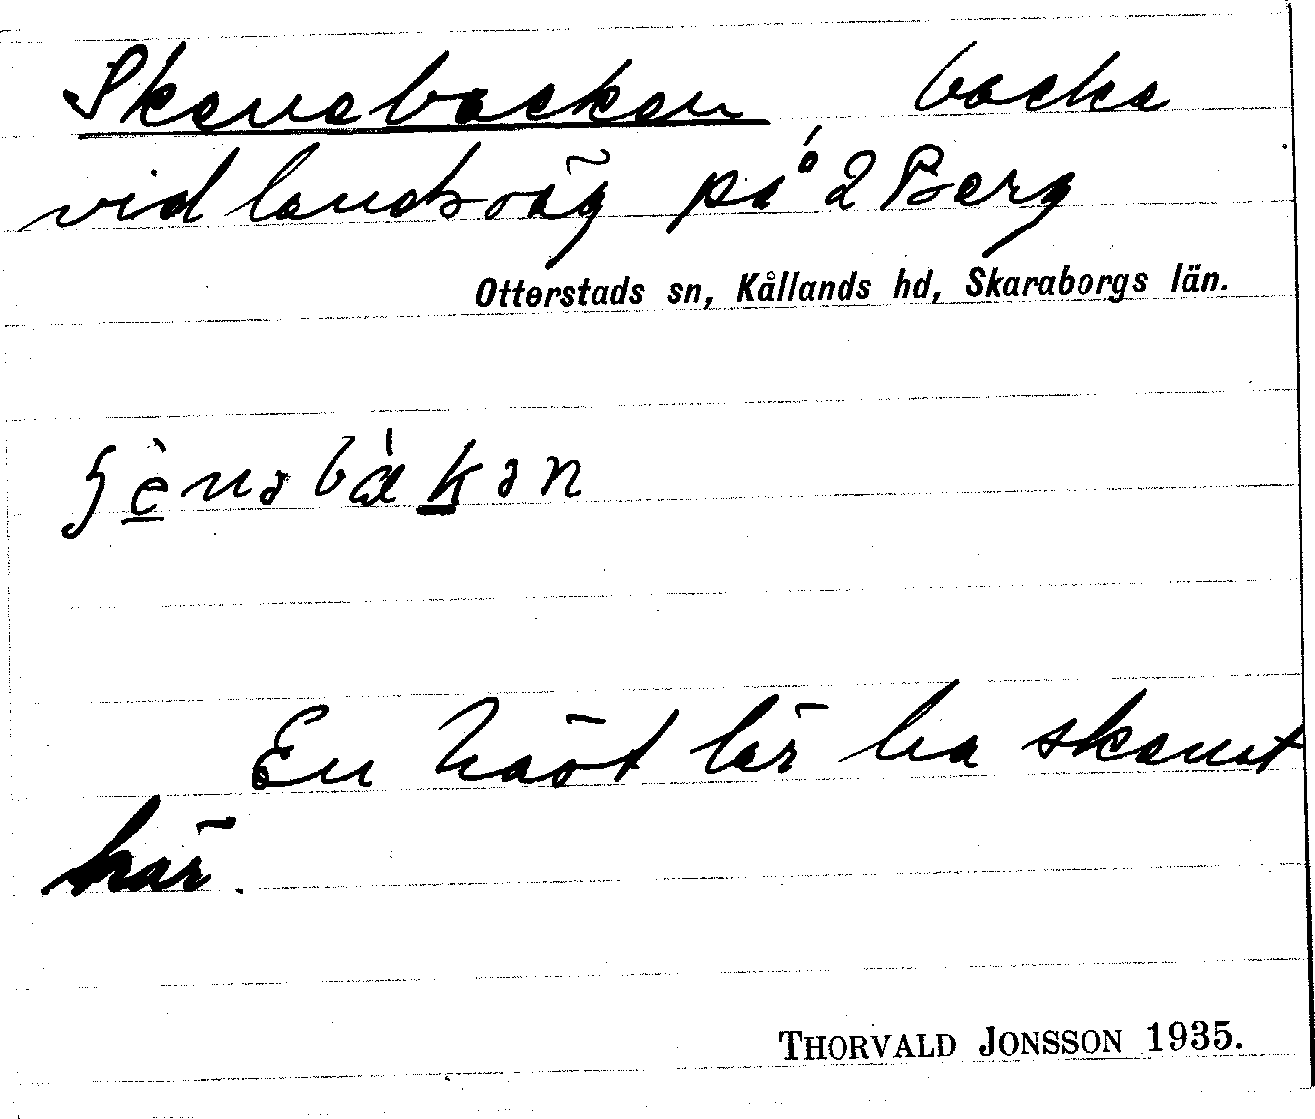 Skenebacken, backe
vid landsväg på 2 Berg
Otterstads sn, Kållands hd, Skaraborgs län.
En häst lär ha skenat
här.
THORVALD JONSSON 1935.